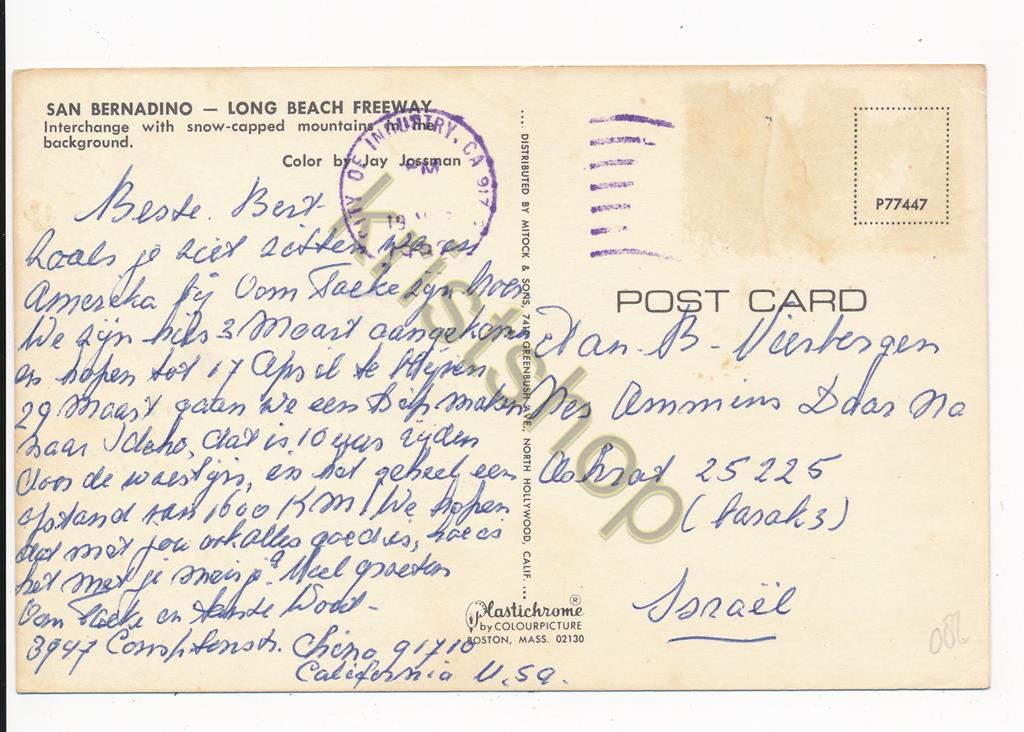 SAN BERNADINO — LONG BEACH FREEWAY
Interchange with snow-capped mountains in the
background.
Color by Jay Jossman
CITY OF INDUSTRY, CA 917
PM
19
Beste Bert
Zoals je ziet zitten we in
Amereka bij Oom Taeke zijn broer
We zijn hier 3 Maart aangekomen
en hopen tot 17 April te blijven
29 Maart gaan we een trip maken
naar Idaho, dat is 10 uur rijden
door de woestijn, en het geheel een
afstand van 1600 KM! We hopen
dat met jou ook alles goed is, hoe is
het met je meisje? Veel groeten
Oom Taeke en tante
3947 Comptonstr. Chino 91710
California U.S.a.
.... DISTRIBUTED BY MITOCK & SONS, 7417 GREENBUSH AVE., NORTH HOLLYWOOD, CALIF. ...
Plastichrome®
by COLOURPICTURE
BOSTON, MASS. 02130
P77447
POST CARD
Aan B. Vierbergen
Nes Ammins Doar Na
Ashrat 25225
Israël
kristshop